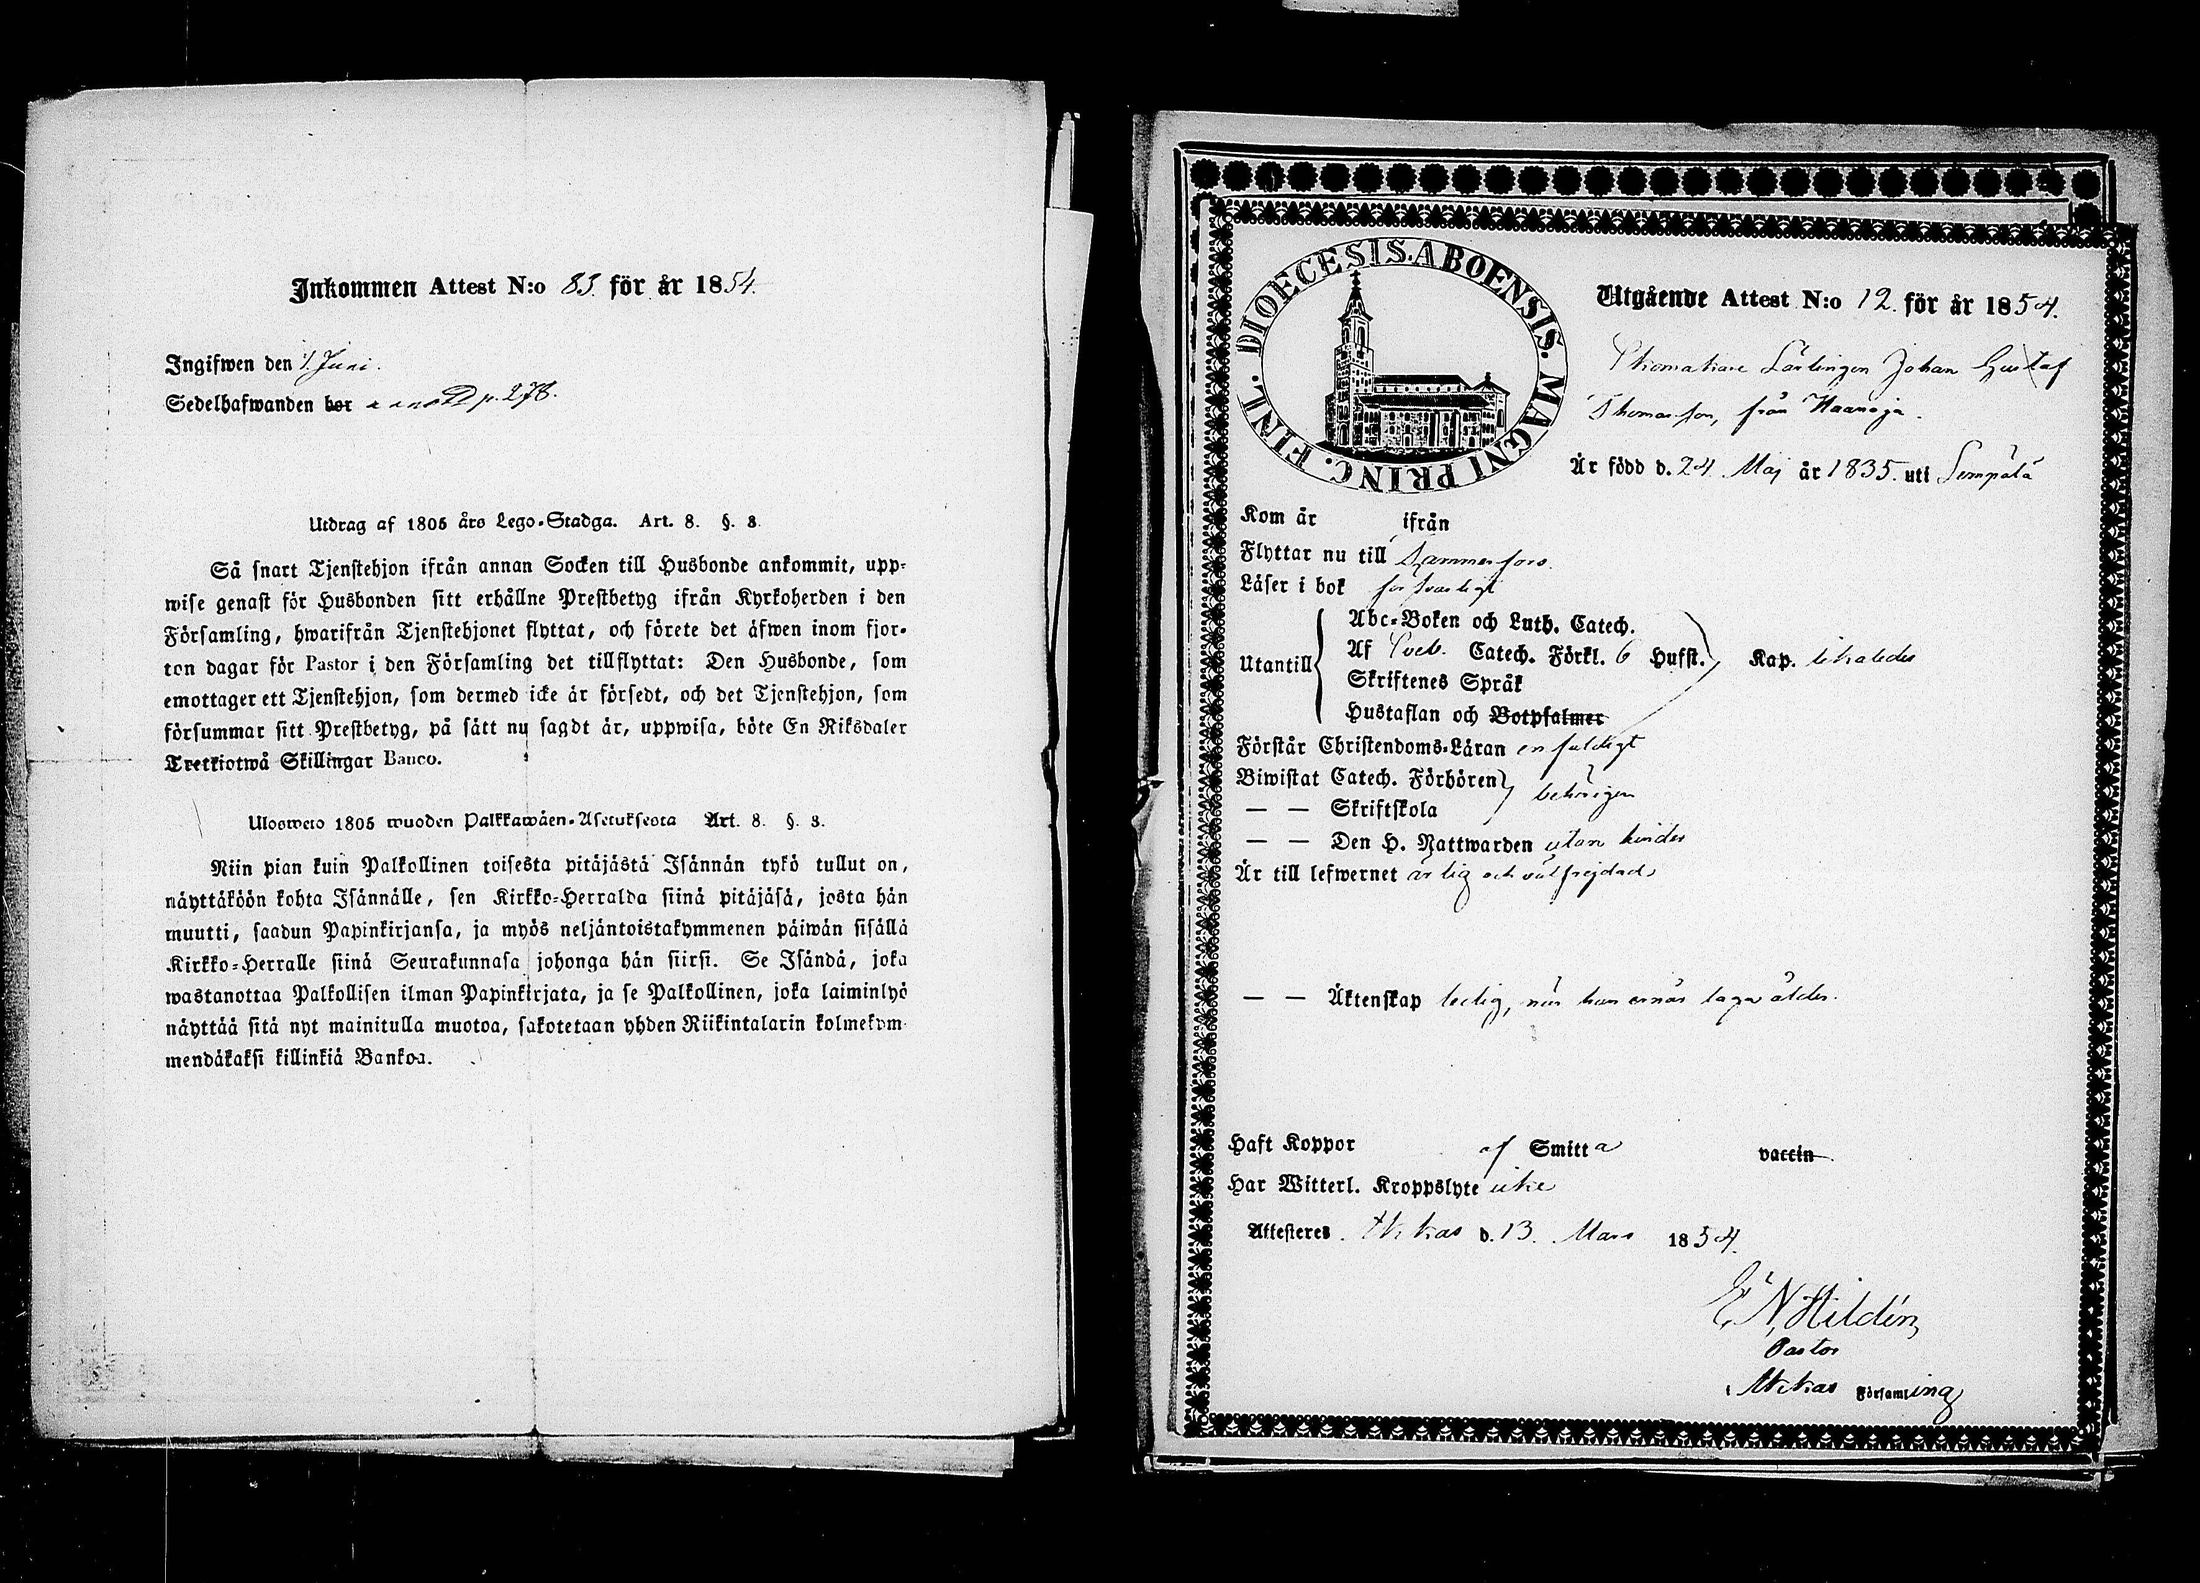 Inkommen Attest N:o 83. för år 1854.
Ingifwen den 1/ Juni.
Sedelhafwanden bor p. 278.
Utdrag af 1805 års Lego-Stadga. Art. 8. §. 8.
Så snart Tjenstehjon ifrån annan Socken till Husbonde ankommit, upp-
wise genast för Husbonden sitt erhållne Prestbetyg ifrån Kyrkoherden i den
Församling, hwarifrån Tjenstehjonet flyttat, och förete det äfwen inom fjor-
ton dagar för Pastor i den Församling det tillflyttat: Den Husbonde, som
emottager ett Tjenstehjon, som dermed icke är försedt, och det Tjenstehjon, som
försummar sitt Prestbetyg, på sätt nu sagdt är, uppwisa, böte En Riksdaler
Tretkiotwå Skillingar Banco.
Ulosweto 1805 wuoden Palkkawäen-Asetuksesta Art. 8. §. 8.
Niin pian kuin Palkollinen toisesta pitäjästä Isännän tykö tullut on,
näyttäköön kohta Isännälle, sen Kirkko-Herralda siinä pitäjäsä, josta hän
muutti, saadun Papinkirjansa, ja myös neljäntoistakymmenen päiwän sisällä
Kirkko-Herralle siinä Seurakunnasa johonga hän siirsi. Se Isändä, joka
wastanottaa Palkollisen ilman Papinkirjata, ja se Palkollinen, joka laiminlyö
näyttää sitä nyt mainitulla muotoa, sakotetaan yhden Riikintalarin kolmekym-
mendäkaksi killinkiä Bankoa.
DIOECESIS. ABOENSIS. MAGNI PRINC. FINL.
Utgående Attest N:o 12. för år 1854.
Lärlingen Johan Gustaf
Thomasson, från Haanoja.
Är född d. 24. Maj år 1835. uti Sempälä
Kom år ifrån
Flyttar nu till Tammerfors.
Läser i bok försvarligt
Utantill
Abc-Boken och Luth. Catech.
Af Sveb. Catech. Förkl. 6 Hufst. Kap. likaledes
Skriftenes Språk
Hustaflan och Botpsalmer
Förstår Christendoms-Läran enfaldigt
Biwistat Catech. Förhören behörigen
— — Skriftskola
— — Den H. Nattwarden utan hinder
Är till lefwernet ärlig och välfrejdad,
— — Äktenskap ledig, när han ernår laga ålder.
Haft Koppor af Smitta vaccin
Har Witterl. Kroppslyte icke
Attesteras Akkas d. 13. Mars 1854.
E. N. Hildén,
Pastor
i Akkas Församling